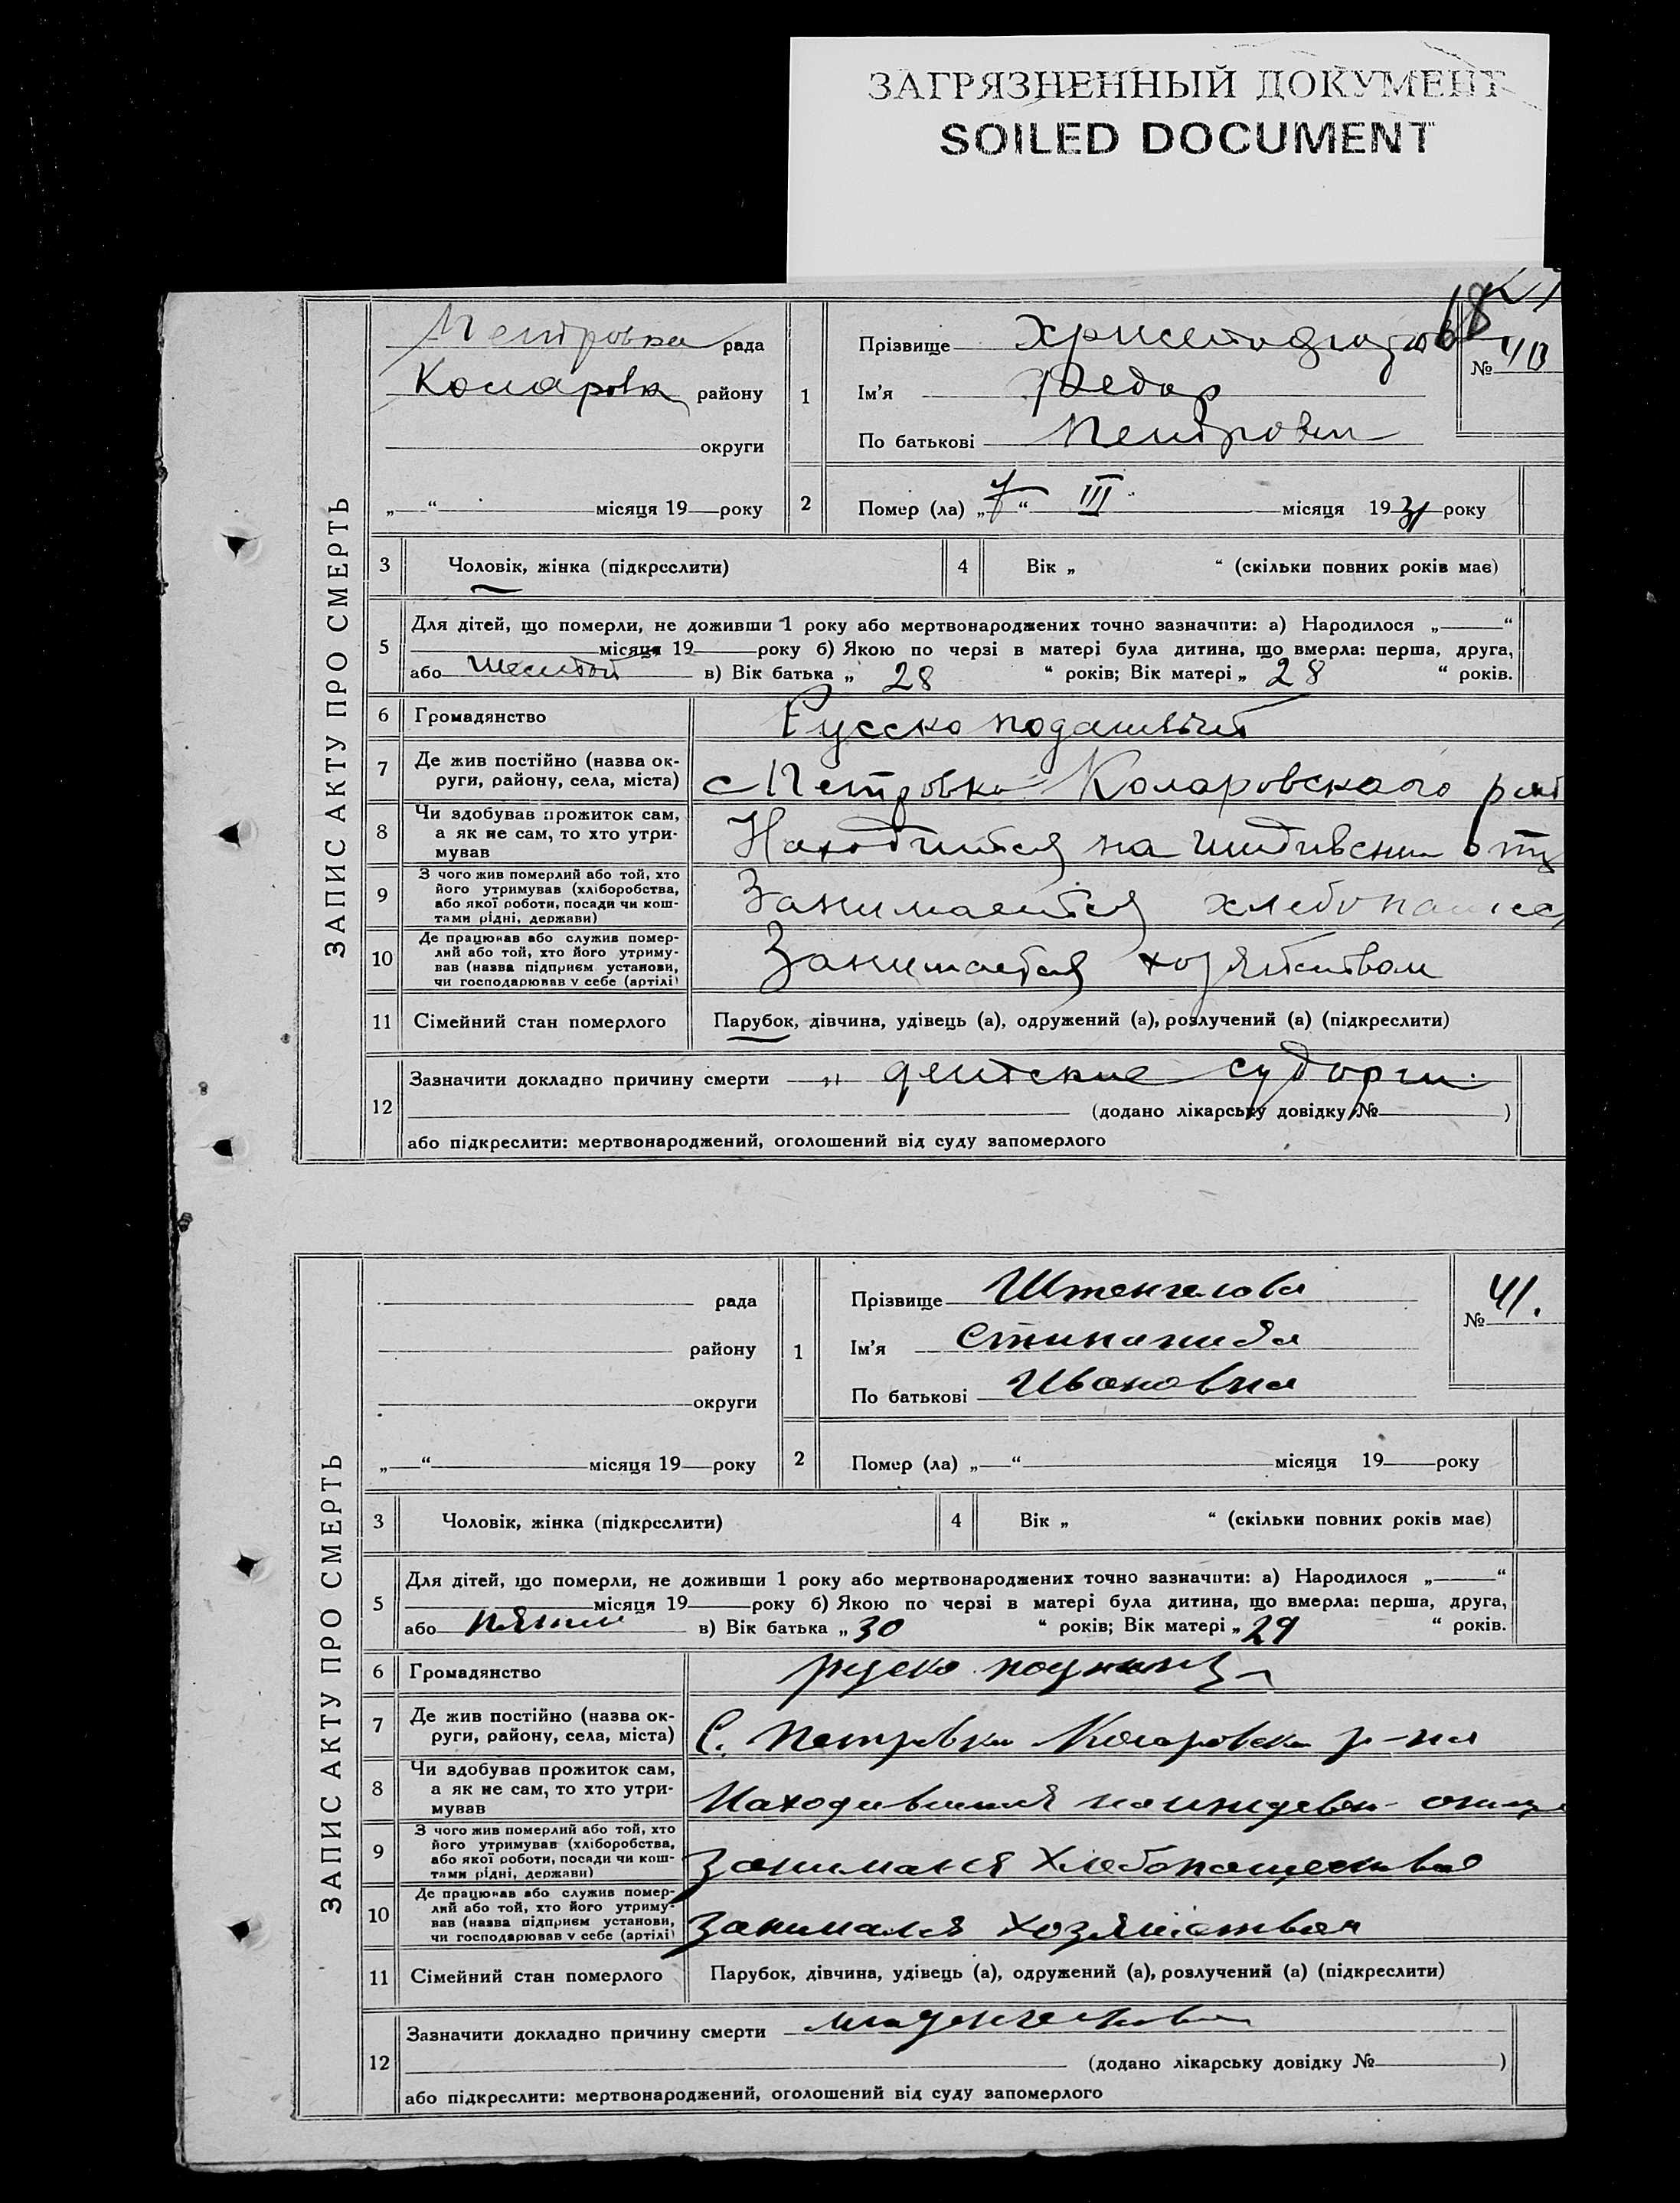 ЗАГРЯЗНЕННЫЙ ДОКУМЕНТ
SOILED DOCUMENT
18
ЗАПИС АКТУ ПРО СМЕРТЬ
Петровка рада
Коларовк району
округи
„ “ місяця 19 року
1
Прізвище
Ім’я Федор
По батькові Петрович
№ 40
2
Помер (ла) „7“ III місяця 1931 року
3 Чоловік, жінка (підкреслити)
4 Вік „ “ (скільки повних років має)
5
Для дітей, що померли, не доживши 1 року або мертвонароджених точно зазначити: а) Народилося „ “
місяця 19 року б) Якою по черзі в матері була дитина, що вмерла: перша, друга,
або шестой в) Вік батька „ 28 “ років; Вік матері „ 28 “ років.
6 Громадянство Русско подданный
7 Де жив постійно (назва ок-
руги, району, села, міста)
с Петровка Коларовского
8 Чи здобував прожиток сам,
а як не сам, то хто утри-
мував
Находится на
9 З чого жив померлий або той, хто
його утримував (хліборобства,
або якої роботи, посади чи кош-
тами рідні, держави)
Занимается
10 Де працював або служив помер-
лий або той, хто його утриму-
вав (назва підприєм установи,
чи господарював у себе (артілі)
Занимается хозяйством
11 Сімейний стан померлого Парубок, дівчина, удівець (а), одружений (а), розлучений (а) (підкреслити)
12
Зазначити докладно причину смерти „ детские судорги.
(додано лікарську довідку № )
або підкреслити: мертвонароджений, оголошений від суду запомерлого
ЗАПИС АКТУ ПРО СМЕРТЬ
рада
району
округи
„ “ місяця 19 року
1
Прізвище Штенгелова
Ім’я Стипанида
По батькові Ивановна
№ 41.
2
Помер (ла) „ “ місяця 19 року
3 Чоловік, жінка (підкреслити)
4 Вік „ “ (скільки повних років має)
5
Для дітей, що померли, не доживши 1 року або мертвонароджених точно зазначити: а) Народилося „ “
місяця 19 року б) Якою по черзі в матері була дитина, що вмерла: перша, друга,
або в) Вік батька „ 30 “ років; Вік матері „ 29 “ років.
6 Громадянство руско
7 Де жив постійно (назва ок-
руги, району, села, міста)
С. Петровки р-на
8 Чи здобував прожиток сам,
а як не сам, то хто утри-
мував
9 З чого жив померлий або той, хто
його утримував (хліборобства,
або якої роботи, посади чи кош-
тами рідні, держави)
10 Де працював або служив помер-
лий або той, хто його утриму-
вав (назва підприєм установи,
чи господарював у себе (артілі)
11 Сімейний стан померлого Парубок, дівчина, удівець (а), одружений (а), розлучений (а) (підкреслити)
12
Зазначити докладно причину смерти
(додано лікарську довідку № )
або підкреслити: мертвонароджений, оголошений від суду запомерлого